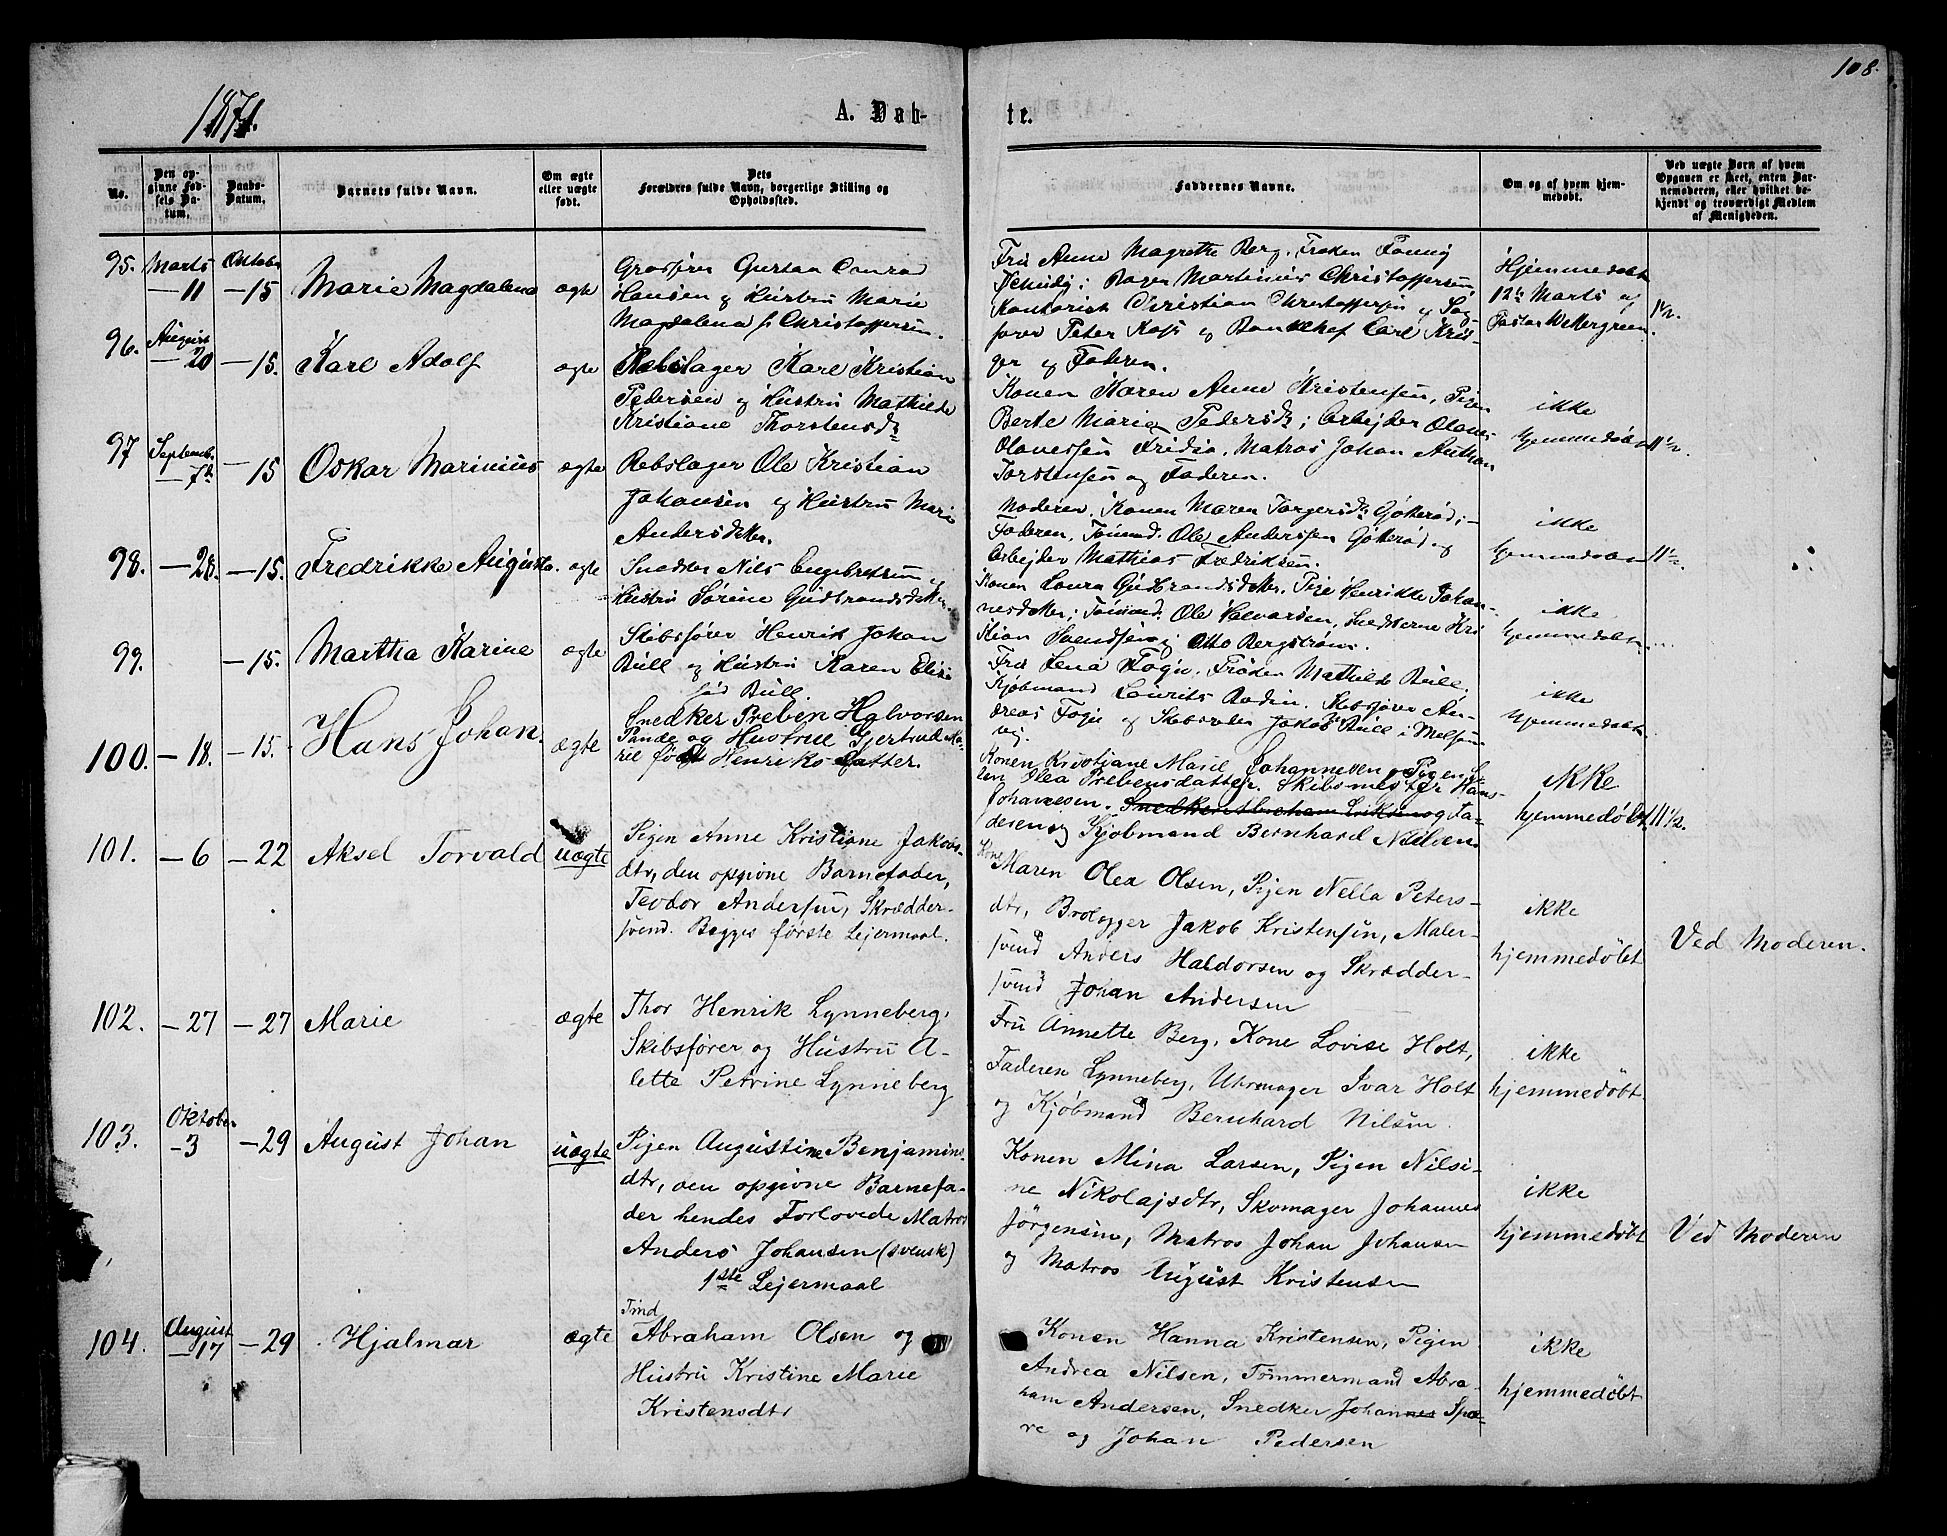 1871.
A. Døb-
te.
108.
No.
Den op-
givne Fød-
sels Da-
tum.
Daabs-
Datum.
Barnets fulde Navn.
Om ægte
eller uægte
født.
Dets
Forældres fulde Navn, borgerlige Stilling og
Opholdssted.
Faddernes Navne.
Om og af hvem hjem-
medøbt.
Ved uægte Børn af hvem
Opgaven er skeet, enten Bar-
nemoderen, eller hvilket be-
kjendt og troværdigt Medlem
af Menigheden.
95.
Marts
— 11
Oktober
— 15
Marie Magdalena
ægte
Grosserer Gustav Conrad
Hansen og Hustru Marie
Magdalena f. Christoffersen.
Fru Anne Magrethe Berg, Frøken Fanny
Bager Martinius Christoffersen,
Kontorist Christian Christoffersen og
fører Peter og Bankchef Carl
og Faderen.
Hjemmedøbt
12te Marts af
Wettergreen.
1½.
96.
August
— 20
— 15.
Karl Adolf
ægte
Rebslager Karl Kristian
Pedersen og Hustru Mathilde
Kristiane Thorstensdtr
Konen Karen Anne Kristensen, Pigen
Berte Marie Pedersdtr; Arbejder
Matros Johan Anthon
Torstensen og Faderen.
ikke
hjemmedøbt
11½.
97
Septemb.
— 7de
— 15
Oskar Marinius
ægte
Rebslager Ole Kristian
Johansen og Hustru Marie
Andersdatter.
Moderen, Konen Maren Torgersdtr Gøtterød;
Faderen, Tømmd. Ole Anderssen Gøtterød og
Arbejder Mathias Fredriksen.
ikke
hjemmedøbt
11½.
98.
— 28.
— 15.
Fredrikke Augusta.
ægte
Snedker Nils Engebretsen og
Hustru Sørine Gudbrandsdatter.
Konen Laura Gudbrandsdatter, Pige Henrikke Johan-
nesdatter; Tømmd. Ole Halvorsen, Snedkerne Kri
stian Svendsen og Otto Bergstrøm.
ikke
hjemmedøbt
99.
— 15.
Martha Karine
ægte
Skibsfører Henrik Johan
Bull og Hustru Karen Elise
fød Bull.
Fru Lena Foyn, Frøken Mathilde Bull,
Kjøbmand Laurits Bodin, Skibsfører An-
dreas Foyn og Skibsreder Jakob Bull i Melsom-
vig.
ikke
hjemmedøbt
100.
— 18.
— 15.
Hans Johan.
ægte
Snedker Preben Halvorsen
Pande og Hustrue Gjertrud Ma-
rie født Henriksdatter.
Konen Kristiane Marie Johannesen, Pigen E-
len Olea Prebensdatter. Skibsmester Hans
Johannesen. Snedker Abraham Eriksen og Fa-
deren og Kjøbmand Bernhard Nielsen.
ikke
hjemmedøbt.
11½.
101.
— 6
— 22
Aksel Torvald
uægte
Pigen Anne Kristiane Jakobs-
dtr, den opgivne Barnefader,
Teodor Andersen, Skrædder-
svend. Begges første Lejermaal.
Kone
Maren Olea Olsen, Pigen Nella Peters-
dtr, Brolægger Jakob Kristensen, Maler-
svend Anders Haldorsen og Skrædder-
svend Johan Andersen
ikke
hjemmedøbt
Ved Moderen.
102.
— 27
— 27
Marie
ægte
Thor Henrik Lynneberg,
Skibsfører og Hustru A-
lette Petrine Lynneberg
Fru Annette Berg, Kone Lovise Holt,
Faderen Lynneberg, Uhrmager Ivar Holt
og Kjøbmand Bernhard Nilsen.
ikke
hjemmedøbt
103.
Oktober
— 3
— 29
August Johan
uægte
Pigen Augustine Benjamins-
dtr, den opgivne Barnefa-
der hendes Forlovede Matros
Anders Johansen (svensk)
1ste Lejermaal
Konen Mina Larsen, Pigen Nilsi-
ne Nikolajsdtr, Skomager Johannes
Jørgensen, Matros Johan Johansen
og Matros August Kristensen
ikke
hjemmedøbt
Ved Moderen
104.
August
— 17
— 29
Hjalmar
ægte
Tmd
Abraham Olsen og
Hustru Kristine Marie
Kristensdtr
Konen Hanna Kristensen, Pigen
Andrea Nilsen, Tømmermand Abra-
ham Andersen, Snedker Johannes Spæ-
re og Johan Pedersen
ikke
hjemmedøbt